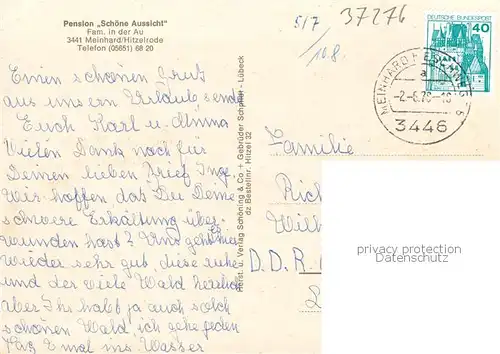 Pension „Schöne Aussicht"
Fam. in der Au
3441 Meinhard/Hitzelrode
Telefon (05651) 68 20
5/7
37276
108
DEUTSCHE BUNDESPOST
40
MEINHARD
-2.-6.78-18
3446
Einen schönen Gruß
aus unserm Urlaub sendet
Euch Karl u. Minna
Vielen Dank noch für
Deinen lieben Brief Inge,
Wir hoffen das Du Deine
schwere Erkältung über-
wunden hast? Uns geht es hier
wieder sehr gut, diese ruhe
und der viele Wald herrlich
aber Ihr habt ja auch solch
schönen Wald, ich gehe jeden
Tag 2 mal ins Wasser
Horst. u. Verlag Schöning & Co + Gebrüder Schmidt - Lübeck
dz Bestellnr. Hitzel 32
Familie
D.D.R.
privacy protection
Datenschutz